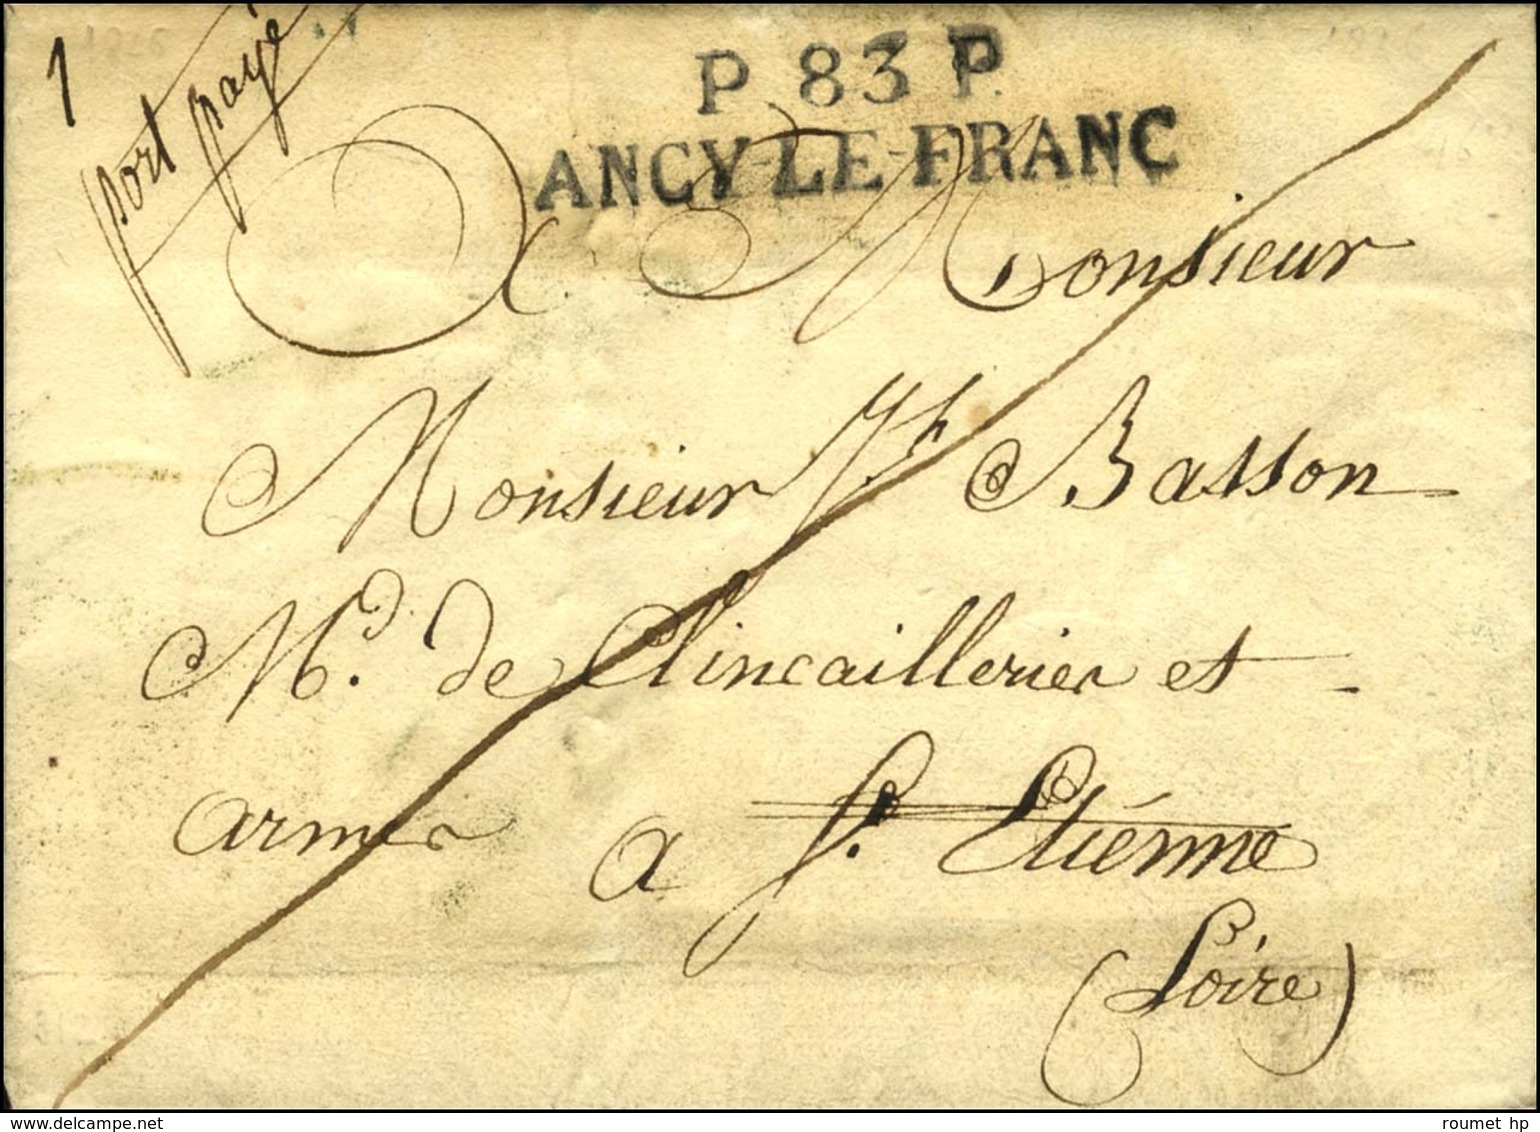 1
port payé
P 83 P.
ANCY-LE-FRANC
A Monsieur
Monsieur Jh Basson
Md. de Clincailleries et
armes a St. Etiénne
(Loire)
roumet hp